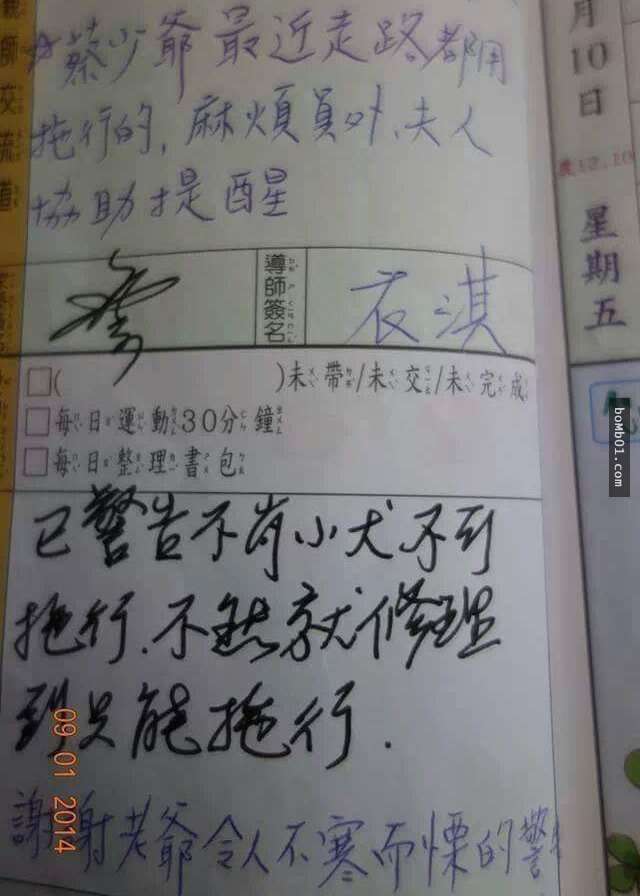 親師交流道
蔡少爺最近走路都用
拖行的,麻煩員外、夫人
協助提醒
導師簽名
衣淇
□( )未帶/未交/未完成
□每日運動30分鐘
□每日整理書包
已警告不肖小犬不可
拖行.不然就修理
到只能拖行.
謝謝老爺令人不寒而慄的警
月10日
農12.10
星期五
boMb01.com
09 01 2014